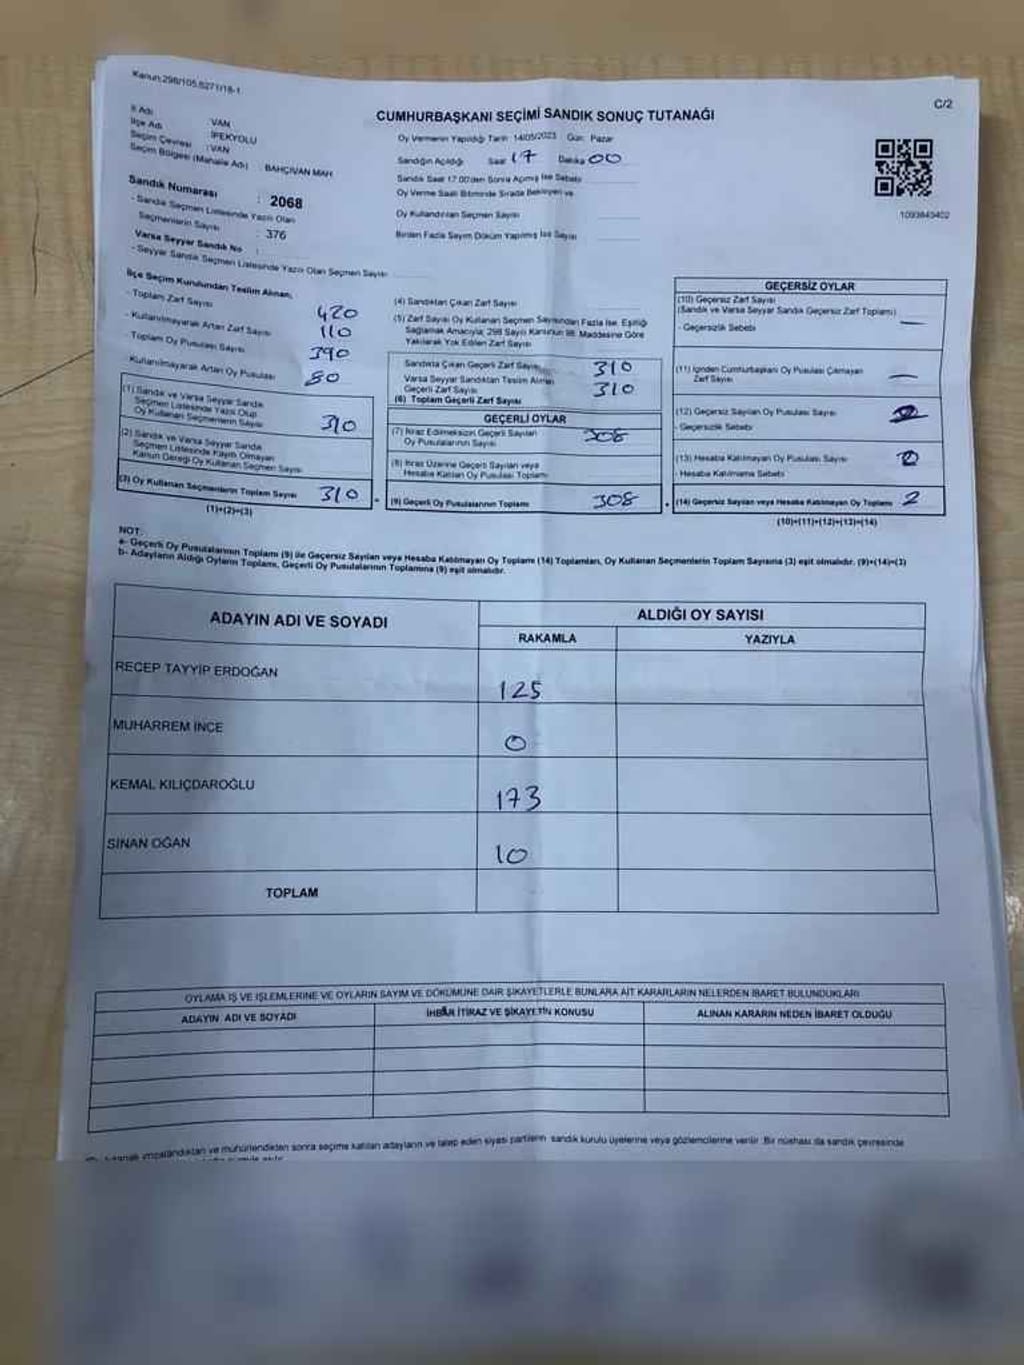 Kanun:298/105,6271/18-1
C/2
CUMHURBAŞKANI SEÇİMİ SANDIK SONUÇ TUTANAĞI
İl Adı : VAN
İlçe Adı : İPEKYOLU
Seçim Çevresi : VAN
Seçim Bölgesi (Mahalle Adı) : BAHÇIVAN MAH
Sandık Numarası : 2068
- Sandık Seçmen Listesinde Yazılı Olan
Seçmenlerin Sayısı : 376
Varsa Seyyar Sandık No :
- Seyyar Sandık Seçmen Listesinde Yazılı Olan Seçmen Sayısı
Oy Vermenin Yapıldığı Tarih 14/05/2023 Gün: Pazar
Sandığın Açıldığı Saat 17 Dakika 00
Sandık Saat 17:00'den Sonra Açılmış İse Sebebi
Oy Verme Saati Bitiminde Sırada Bekleyen ve
Oy Kullandırılan Seçmen Sayısı
Birden Fazla Sayım Döküm Yapılmış İse Sayısı
1093843402
İlçe Seçim Kurulundan Teslim Alınan;
- Toplam Zarf Sayısı 420
- Kullanılmayarak Artan Zarf Sayısı 110
- Toplam Oy Pusulası Sayısı 390
- Kullanılmayarak Artan Oy Pusulası 80
(1) Sandık ve Varsa Seyyar Sandık
Seçmen Listesinde Yazılı Olup
Oy Kullanan Seçmenlerin Sayısı 310
(2) Sandık ve Varsa Seyyar Sandık
Seçmen Listesinde Kayıtlı Olmayan
Kanun Gereği Oy Kullanan Seçmen Sayısı
(3) Oy Kullanan Seçmenlerin Toplam Sayısı 310
(1)+(2)=(3)
(4) Sandıktan Çıkan Zarf Sayısı
(5) Zarf Sayısı Oy Kullanan Seçmen Sayısından Fazla İse, Eşitliği
Sağlamak Amacıyla, 298 Sayılı Kanunun 98. Maddesine Göre
Yakılarak Yok Edilen Zarf Sayısı
Sandıkta Çıkan Geçerli Zarf Sayısı 310
Varsa Seyyar Sandıktan Teslim Alınan
Geçerli Zarf Sayısı 310
(6) Toplam Geçerli Zarf Sayısı
GEÇERLİ OYLAR
(7) İtiraz Edilmeksizin Geçerli Sayılan
Oy Pusulalarının Sayısı 308
(8) İtiraz Üzerine Geçerli Sayılan veya
Hesaba Katılan Oy Pusulası Toplamı
(9) Geçerli Oy Pusulalarının Toplamı 308
GEÇERSİZ OYLAR
(10) Geçersiz Zarf Sayısı
(Sandık ve Varsa Seyyar Sandık Geçersiz Zarf Toplamı) —
- Geçersizlik Sebebi
(11) İçinden Cumhurbaşkanı Oy Pusulası Çıkmayan
Zarf Sayısı —
(12) Geçersiz Sayılan Oy Pusulası Sayısı
- Geçersizlik Sebebi
(13) Hesaba Katılmayan Oy Pusulası Sayısı
- Hesaba Katılmama Sebebi
(14) Geçersiz Sayılan veya Hesaba Katılmayan Oy Toplamı 2
(10)+(11)+(12)+(13)=(14)
NOT:
a- Geçerli Oy Pusulalarının Toplamı (9) ile Geçersiz Sayılan veya Hesaba Katılmayan Oy Toplamı (14) Toplamları, Oy Kullanan Seçmenlerin Toplam Sayısına (3) eşit olmalıdır. (9)+(14)=(3)
b- Adayların Aldığı Oyların Toplamı, Geçerli Oy Pusulalarının Toplamına (9) eşit olmalıdır.
ADAYIN ADI VE SOYADI
ALDIĞI OY SAYISI
RAKAMLA YAZIYLA
RECEP TAYYİP ERDOĞAN 125
MUHARREM İNCE 0
KEMAL KILIÇDAROĞLU 173
SİNAN OĞAN 10
TOPLAM
OYLAMA İŞ VE İŞLEMLERİNE VE OYLARIN SAYIM VE DÖKÜMÜNE DAİR ŞİKAYETLERLE BUNLARA AİT KARARLARIN NELERDEN İBARET BULUNDUKLARI
ADAYIN ADI VE SOYADI İHBAR İTİRAZ VE ŞİKAYETİN KONUSU ALINAN KARARIN NEDEN İBARET OLDUĞU
tutanak imzalandıktan ve mühürlendikten sonra seçime katılan adayların ve talep eden siyasi partilerin sandık kurulu üyelerine veya gözlemcilerine verilir. Bir nüshası da sandık çevresinde